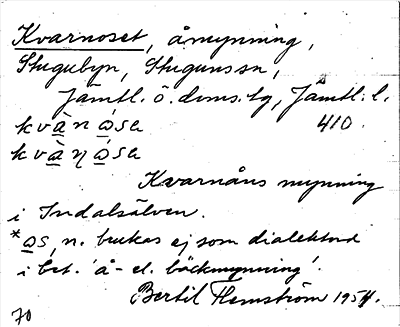 Kvarnoset, åmynning,
Stugubyn, Stuguns sn,
Jämtl. ö. doms. tg, Jämtl. l.
kvàn ò̱sa 410.
kvàŋ ó̱sa
Kvarnåns mynning
i Indalsälven.
*o̱s, n. brukas ej som dialektord
i bet. 'å- el. bäckmynning'.
Bertil Flemström 1954.
70